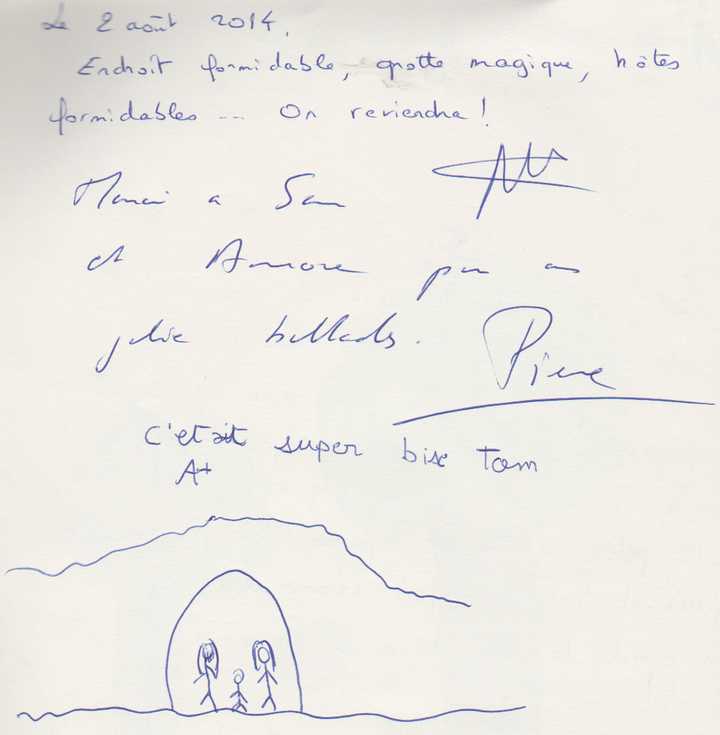 Le 2 août 2014.
Endroit formidable, grotte magique, hôtes
formidables ... On reviendra !
Merci a Sam
et Amore pour ces
jolie ballades.
Pierre
C'etait super bise Tom
A+